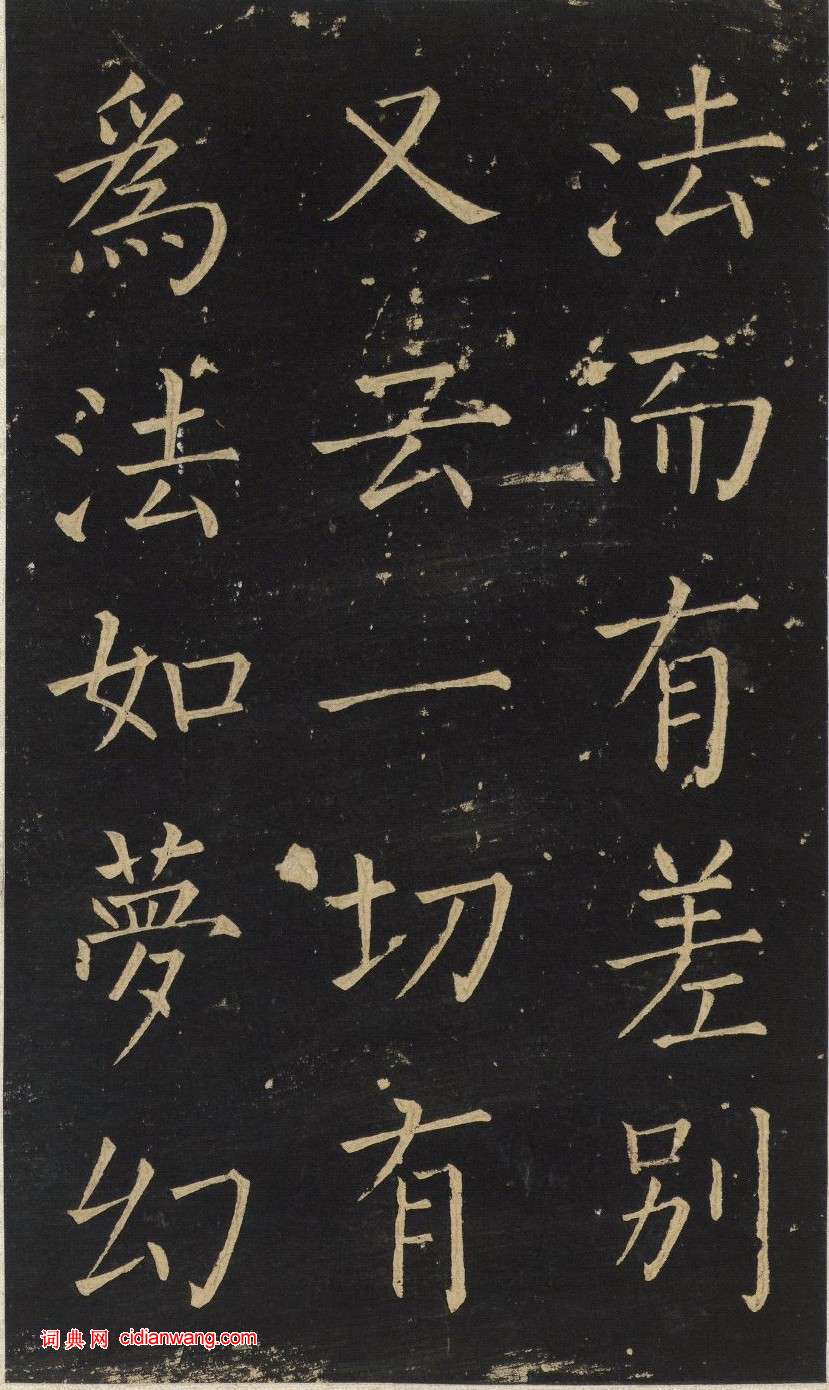 法而有差别
又云一切有
為法如夢幻
词典网 cidianwang.com